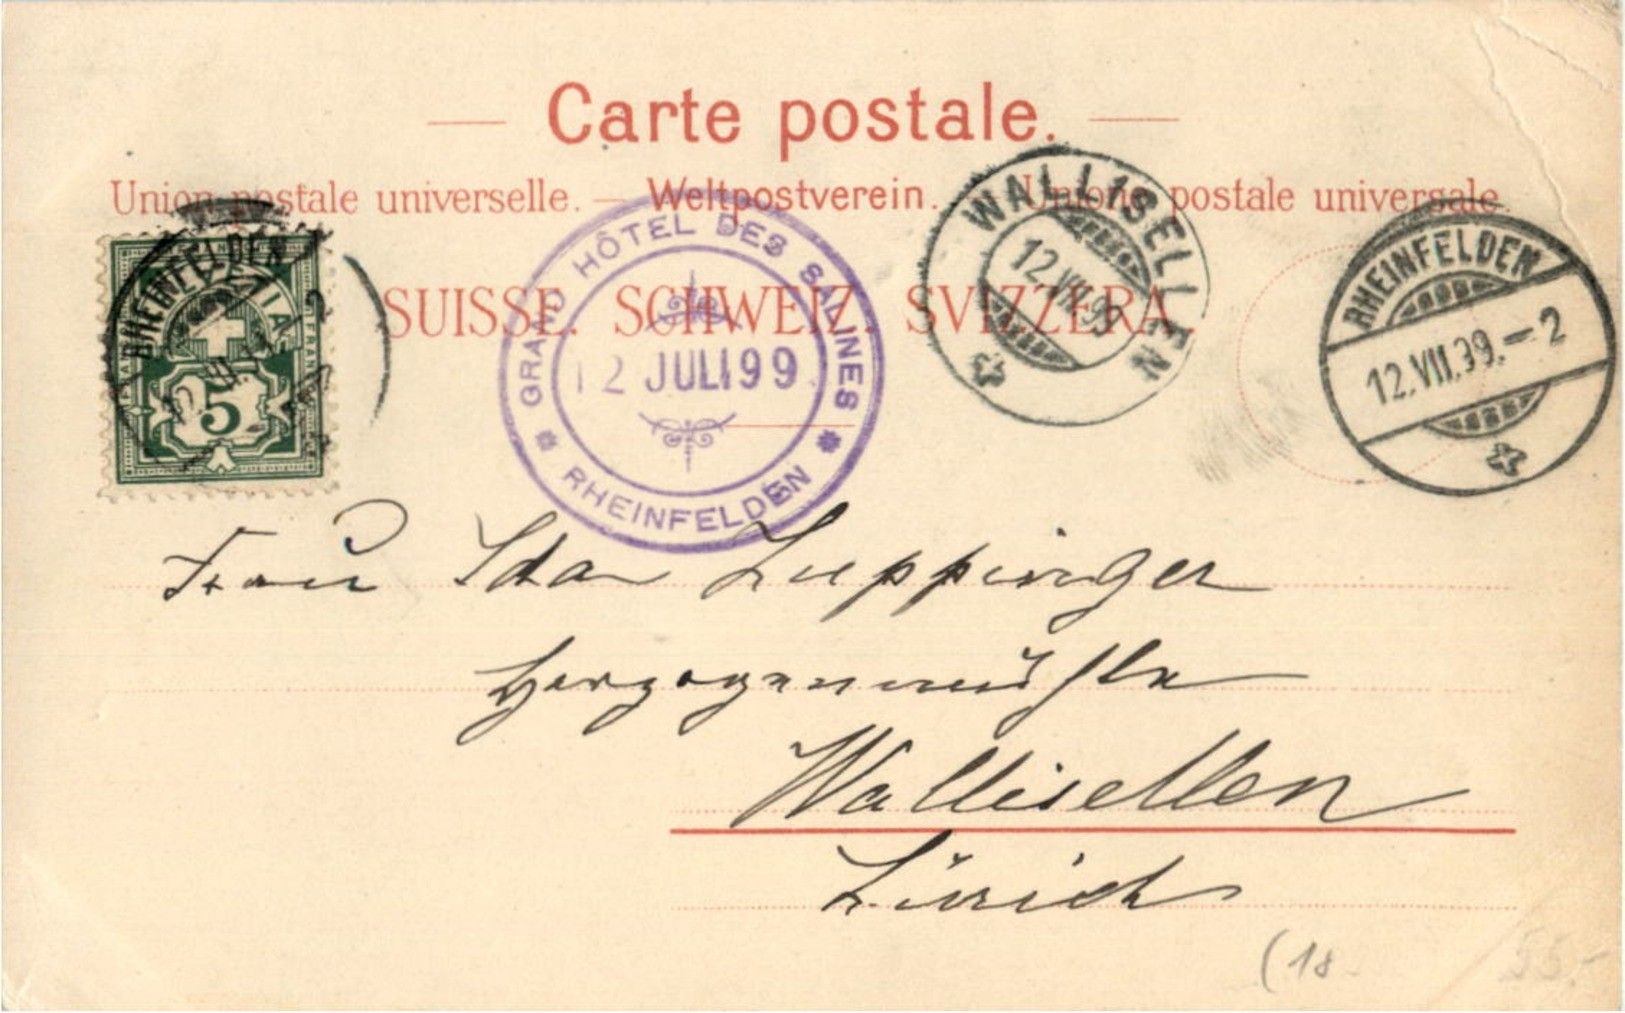 Carte postale.
Union postale universelle. — Weltpostverein. — Unione postale universale.
SUISSE. SCHWEIZ. SVIZZERA.
RHEINFELDEN
5
GRAND HÔTEL DES SALINES
12 JULI 99
* RHEINFELDEN *
WALLISELLEN
12.VII.99
RHEINFELDEN
12.VII.99.-2
Frau Ida
Herzogenmühle
Wallisellen
Zürich
(18
55.-